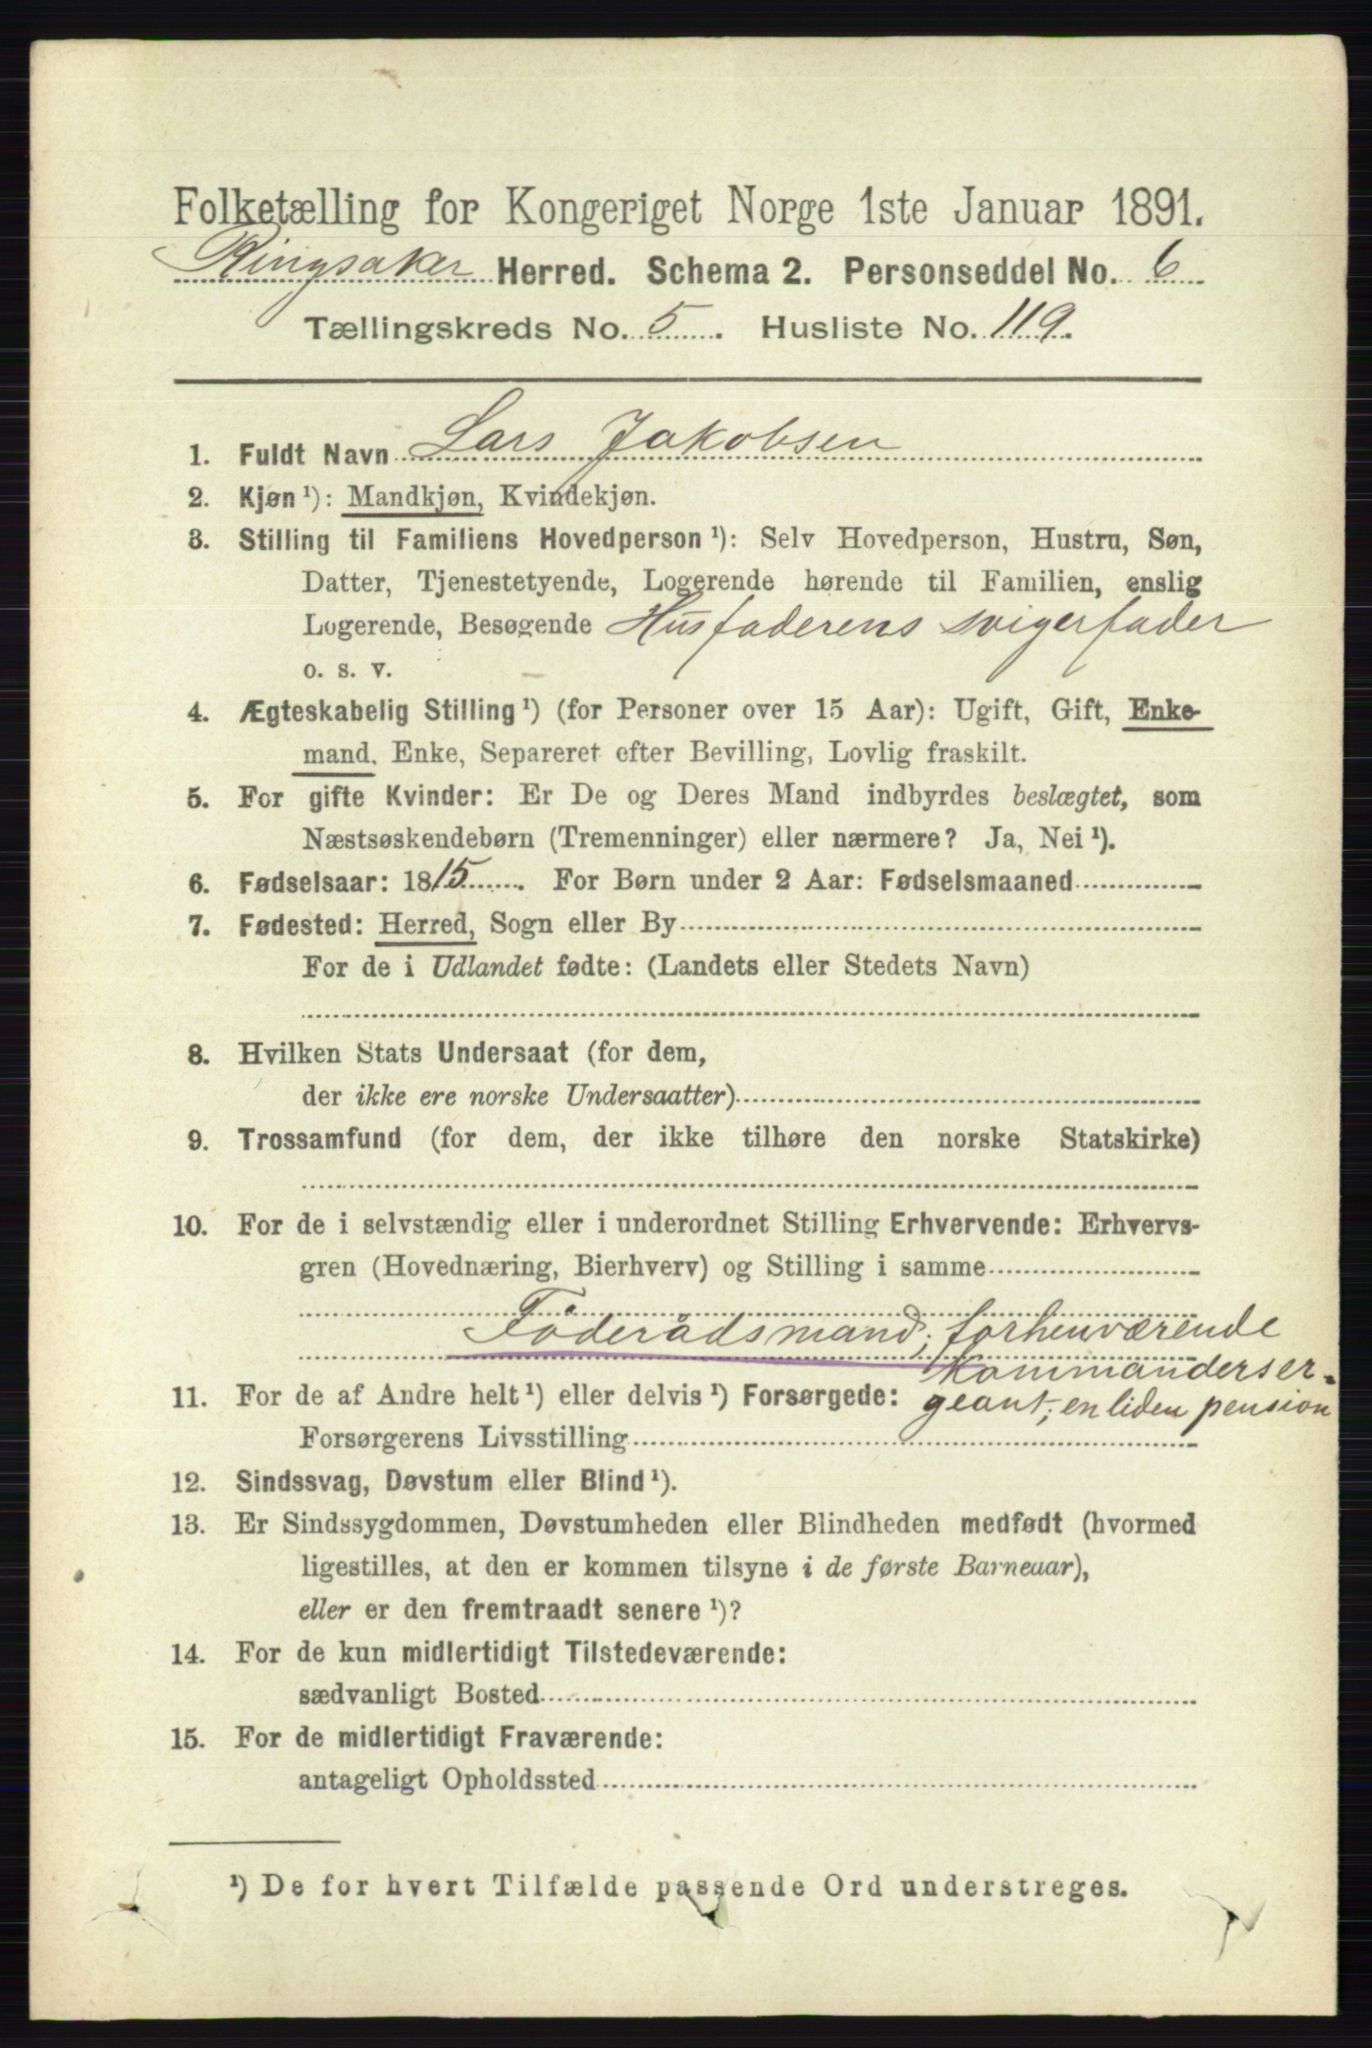 Folketælling for Kongeriget Norge 1ste Januar 1891.
Ringsaker Herred. Schema 2. Personseddel No. 6
Tællingskreds No. 5. Husliste No. 119.
1. Fuldt Navn Lars Jakobsen
2. Kjøn ¹): Mandkjøn, Kvindekjøn.
3. Stilling til Familiens Hovedperson ¹): Selv Hovedperson, Hustru, Søn,
Datter, Tjenestetyende, Logerende hørende til Familien, enslig
Logerende, Besøgende Husfaderens svigerfader
o. s. v.
4. Ægteskabelig Stilling ¹) (for Personer over 15 Aar): Ugift, Gift, Enke-
mand, Enke, Separeret efter Bevilling, Lovlig fraskilt.
5. For gifte Kvinder: Er De og Deres Mand indbyrdes beslægtet, som
Næstsøskendebørn (Tremenninger) eller nærmere? Ja, Nei ¹).
6. Fødselsaar: 1815. For Børn under 2 Aar: Fødselsmaaned
7. Fødested: Herred, Sogn eller By
For de i Udlandet fødte: (Landets eller Stedets Navn)
8. Hvilken Stats Undersaat (for dem,
der ikke ere norske Undersaatter)
9. Trossamfund (for dem, der ikke tilhøre den norske Statskirke)
10. For de i selvstændig eller i underordnet Stilling Erhvervende: Erhvervs-
gren (Hovednæring, Bierhverv) og Stilling i samme
Föderådsmand; forhenværende
kommanderser-
11. For de af Andre helt ¹) eller delvis ¹) Forsørgede: geant; en liden pension
Forsørgerens Livsstilling
12. Sindssvag, Døvstum eller Blind ¹).
13. Er Sindssygdommen, Døvstumheden eller Blindheden medfødt (hvormed
ligestilles, at den er kommen tilsyne i de første Barneaar),
eller er den fremtraadt senere ¹)?
14. For de kun midlertidigt Tilstedeværende:
sædvanligt Bosted
15. For de midlertidigt Fraværende:
antageligt Opholdssted
¹) De for hvert Tilfælde passende Ord understreges.